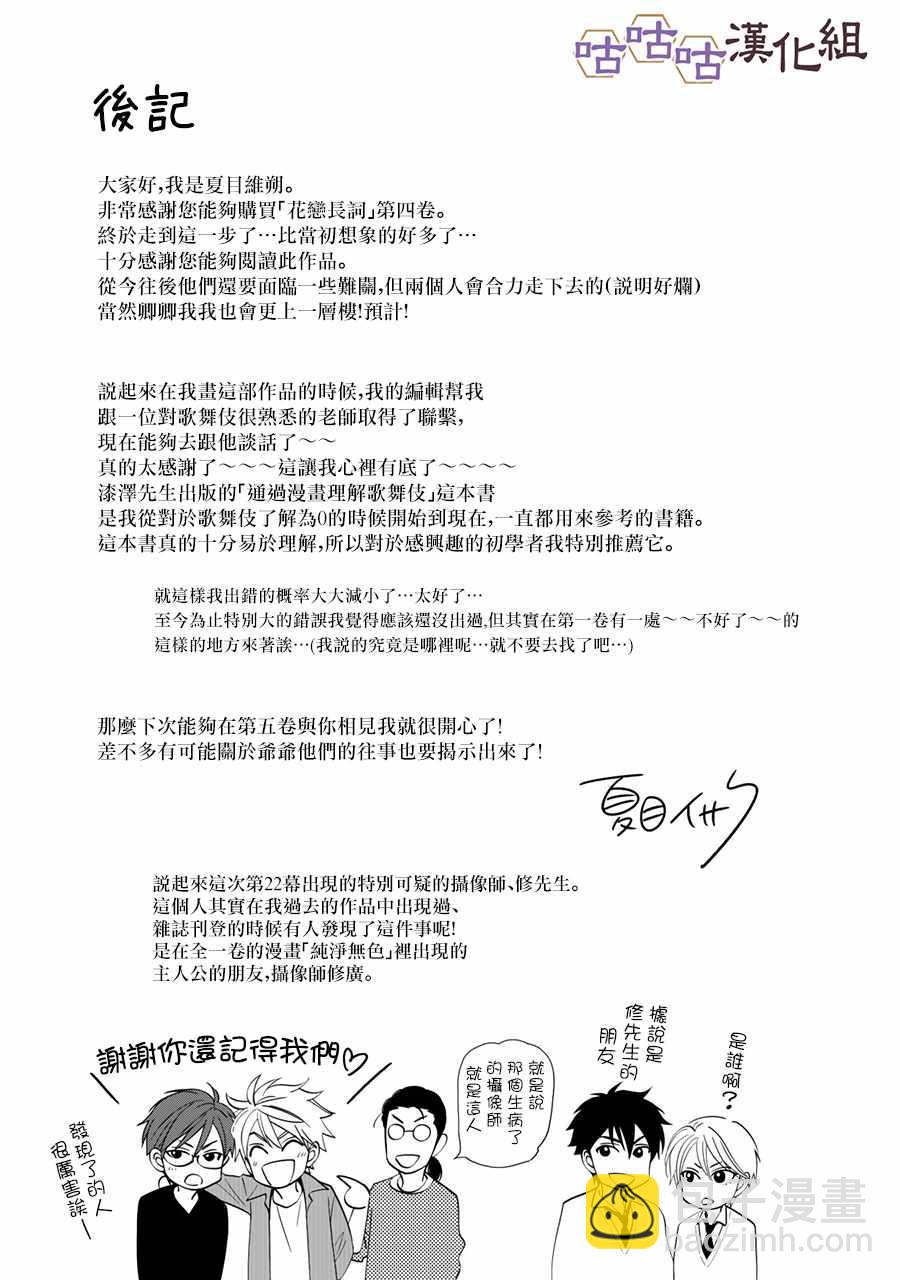 咕咕咕漢化組
後記
大家好,我是夏目維朔。
非常感謝您能夠購買「花戀長詞」第四卷。
終於走到這一步了…比當初想象的好多了…
十分感謝您能夠閱讀此作品。
從今往後他們還要面臨一些難關,但兩個人會合力走下去的(説明好爛)
當然卿卿我我也會更上一層樓!預計!
説起來在我畫這部作品的時候,我的編輯幫我
跟一位對歌舞伎很熟悉的老師取得了聯繫,
現在能夠去跟他談話了～～
真的太感謝了～～～這讓我心裡有底了～～～～
漆澤先生出版的「通過漫畫理解歌舞伎」這本書
是我從對於歌舞伎了解為0的時候開始到現在,一直都用來參考的書籍。
這本書真的十分易於理解,所以對於感興趣的初學者我特別推薦它。
就這樣我出錯的概率大大減小了…太好了…
至今為止特別大的錯誤我覺得應該還沒出過,但其實在第一卷有一處～～不好了～～的
這樣的地方來著誒…(我説的究竟是哪裡呢…就不要去找了吧…)
那麼下次能夠在第五卷與你相見我就很開心了!
差不多有可能關於爺爺他們的往事也要揭示出來了!
夏目イサク
説起來這次第22幕出現的特別可疑的攝像師、修先生。
這個人其實在我過去的作品中出現過、
雜誌刊登的時候有人發現了這件事呢!
是在全一卷的漫畫「純淨無色」裡出現的
主人公的朋友,攝像師修廣。
謝謝你還記得我們♡
發現了的人
很厲害誒—
就是說
那個生病了
的攝像師
就是這人
據說是
修先生的
朋友
是誰啊?
包子漫畫
baozimh.com